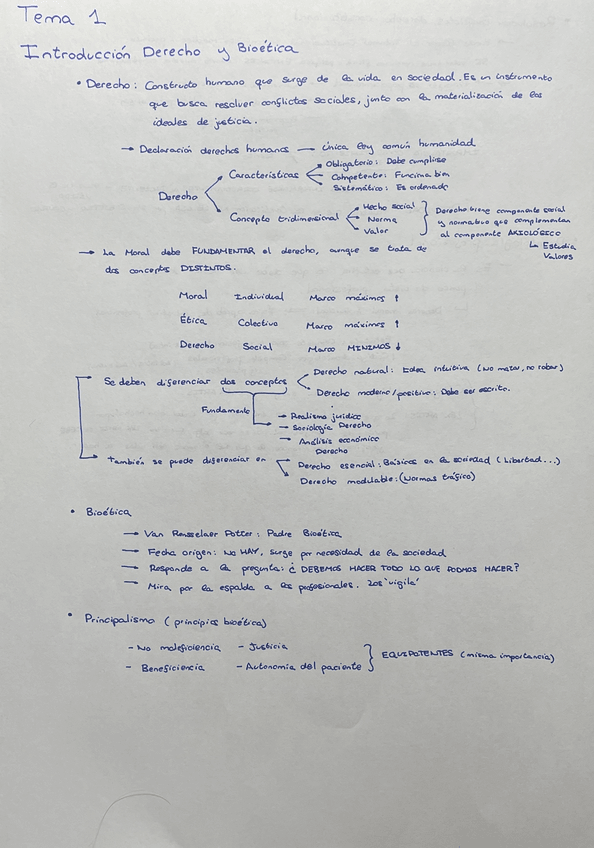 Tema 1
Introducción Derecho y Bioética
• Derecho: Constructo humano que surge de la vida en sociedad. Es un instrumento
que busca resolver conflictos sociales, junto con la materialización de los
ideales de justicia.
→ Declaración derechos humanos — única ley común humanidad
Derecho
Características
Obligatorio: Debe cumplirse
Competente: Funciona bien
Sistemático: Es ordenado
Concepto tridimensional
Hecho social
Norma
Valor
Derecho tiene componente social
y normativo que complementan
al componente AXIOLÓGICO
↳ Estudia
Valores
→ La Moral debe FUNDAMENTAR el derecho, aunque se trata de
dos conceptos DISTINTOS.
Moral Individual Marco máximos ↑
Ética Colectivo Marco máximos ↑
Derecho Social Marco MINIMOS ↓
Se deben diferenciar dos conceptos
Derecho natural: Idea intuitiva (No matar, no robar)
Derecho moderno/positivo: Debe ser escrito.
Fundamento
→ Realismo jurídico
→ Sociología Derecho
→ Análisis económico
Derecho
También se puede diferenciar en
Derecho esencial: Básicos en la sociedad (Libertad...)
Derecho modulable: (Normas tráfico)
• Bioética
→ Van Rensselaer Potter: Padre Bioética
→ Fecha origen: NO HAY, surge por necesidad de la sociedad
→ Responde a la pregunta: ¿DEBEMOS HACER TODO LO QUE PODMOS HACER?
→ Mira por la espalda a los profesionales. Los 'vigila'
• Principalismo (principios bioética)
- No maleficiencia - Justicia
- Beneficiencia - Autonomía del paciente
EQUIPOTENTES (misma importancia)